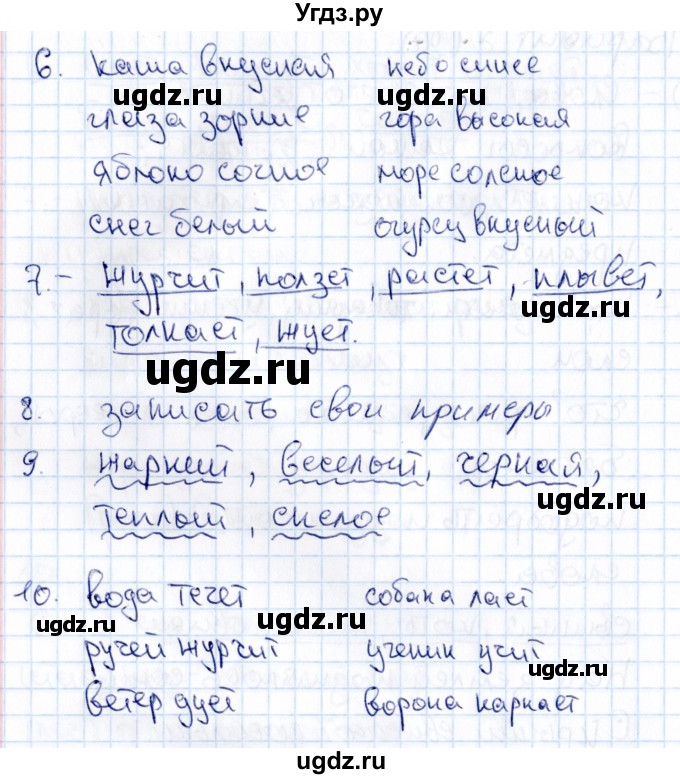 Угдз.ру
6. каша вкусная небо синее
ugdz.ru ugdz.ru
глаза зоркие гора высокая
яблоко сочное море соленое
снег белый огурец вкусный
ugdz.ru
7. – журчит, ползет, растет, плывет,
ugdz.ru
толкает, жует.
ugdz.ru
8. записать свои примеры
9. жаркий, веселый, черная,
ugdz.ru
теплый, спелое
10. вода течет собака лает
ugdz.ru ugdz.ru
ручей журчит ученик учит
ugdz.ru
ветер дует ворона каркает
ugdz.ru